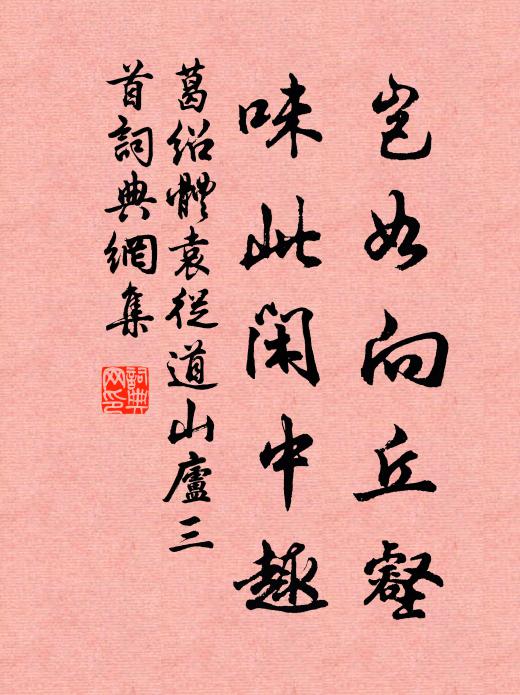 岂如向丘壑
味此闲中趣
葛绍體袁從道山廬三
首詞典網集
詞典
网印